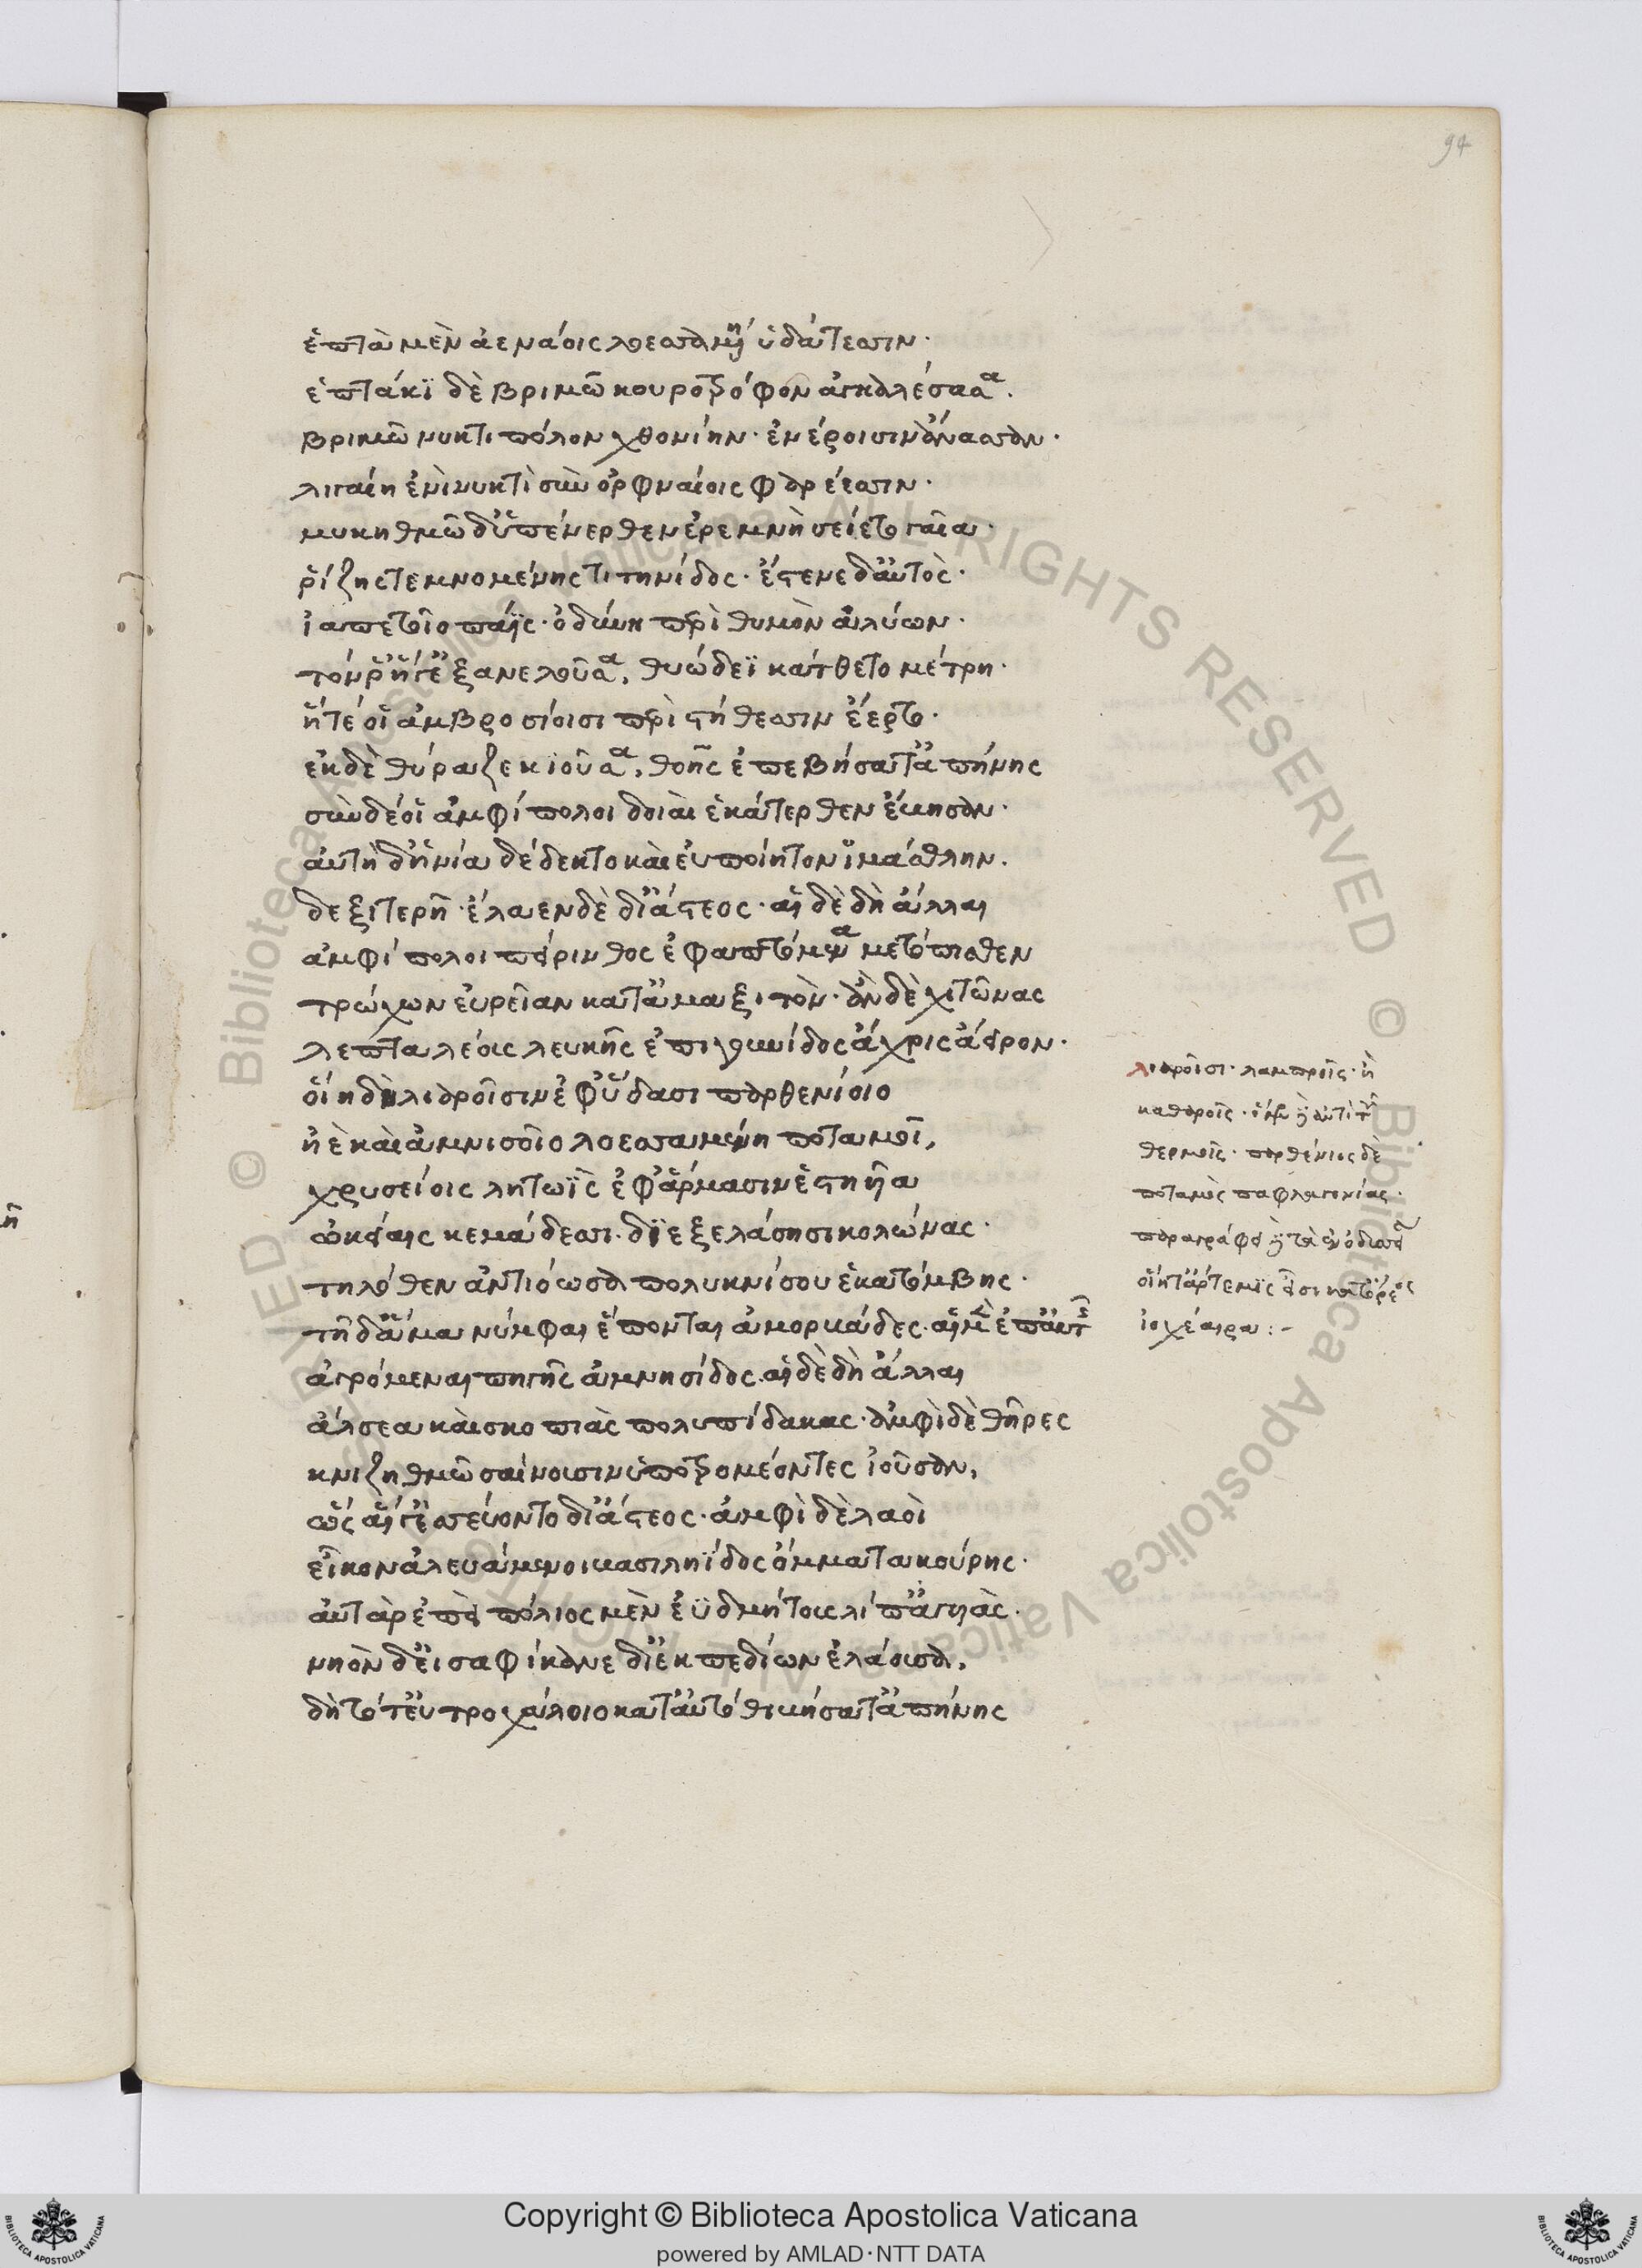 94
ἑπτὰ μὲν ἀενάοις λοεσσαμένη ὑδάτεσσιν·
ἑπτάκϊ δὲ βριμὼ κουροτρόφον ἀγκαλέσασα.
βριμὼ νυκτιπόλον χθονίην· ἐνέροισιν ἄνασσαν·
λυγαίη ἐνὶ νυκτὶ σὺν ὀρφναίοις φαρέεσσιν·
μυκηθμῶ δ' ὑπένερθεν ἐρεμνὴ σείετο γαῖα·
ῥίζης τεμνομένης τιτηνίδος· ἔστενε δ' αὐτὸς·
ἰαπετοῖο πάϊς· ὀδύνη περὶ θυμὸν ἀλύων·
τόν ῥ' ἥγ' ἐξανελοῦσα, θυώδεϊ κάτθετο μίτρη·
ἥ τέ οἱ ἀμβροσίοισι περὶ στήθεσσιν ἔερτο·
ἐκ δὲ θύραζε κιοῦσα, θοῆς ἐπεβήσατ' ἀπήνης
σὺν δέ οἱ ἀμφίπολοι δοιαὶ ἑκάτερθεν ἔβησαν·
αὐτὴ δ' ἡνία δέδεκτο καὶ εὐποίητον ἱμάσθλην.
δεξιτερῆ· ἔλαεν δὲ δι' ἄστεος· αἱ δὲ δὴ ἄλλαι
ἀμφίπολοι πείρινθος ἐφαπτόμεναι μετόπισθεν
τρώχων εὐρεῖαν κατ' ἀμαξιτὸν· ἂν δὲ χιτῶνας
λεπταλέοις λευκῆς ἐπιγουνίδος ἄχρις ἄειρον·
οἵη δὲ λιαροῖσιν ἐφ' ὕδασι παρθενίοιο
ἠὲ καὶ ἀμνισοῖο λοεσσαμένη ποταμοῖο,
χρυσείοις λητωῒς ἐφ' ἅρμασιν ἑστηῆα
ὠκείαις κεμάδεσσι· διεξελάσησι κολώνας·
τηλόθεν ἀντιόωσα πολυκνίσου ἑκατόμβης·
τῆ δ' ἅμα νύμφαι ἕπονται ἀμορβάδες· αἱ μὲν ἐπ' αὐτῆς
ἀγρόμεναι πηγῆς ἀμνησίδος. αἱ δὲ δὴ ἄλλαι
ἄλσεα καὶ σκοπιὰς πολυπίδακας· ἀμφὶ δὲ θῆρες
κνιζηθμῶ σαίνουσιν ὑποτρομέοντες ἰοῦσαν,
ὣς αἵγ' ἐσσεύοντο δι' ἄστεος· ἀμφὶ δὲ λαοὶ
εἶκον ἀλευάμενοι βασιληΐδος ὄμματα κούρης·
αὐτὰρ ἐπεὶ πόλιος μὲν ἐϋδμήτους λίπ' ἀγυιὰς·
νηὸν δ' εἰσαφίκανε διὲκ πεδίων ἐλάουσα,
δὴ τότ' ἐϋτροχάλοιο κατ' αὐτόθι βήσατ' ἀπήνης
λιαροῖσι· λαμπροῖς· ἢ
καθαροῖς·
θερμοῖς· παρθένιος δὲ
ποταμὸς παφλαγονίας·
παραγράφει
οἵη τ' ἄρτεμϊς εἶσι κατ' οὔρεος
ἰοχέαιρα :-
Copyright © Biblioteca Apostolica Vaticana
powered by AMLAD·NTT DATA